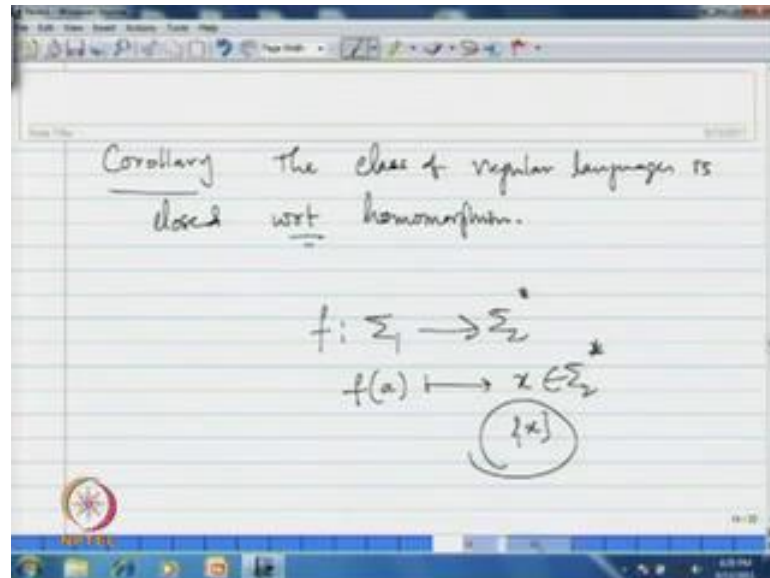 Corollary The class of regular languages is
closed wrt homomorphism.
f : Σ₁ → Σ₂*
f(a) ↦ x ∈ Σ₂*
{x}
NPTEL